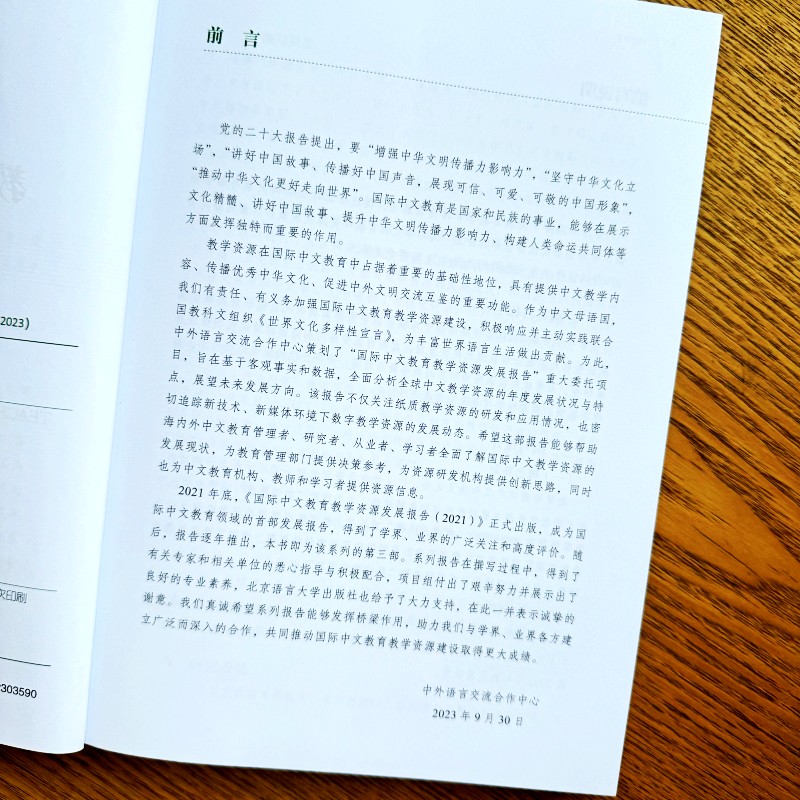 前 言
党的二十大报告提出，要“增强中华文明传播力影响力”，“坚守中华文化立
场”，“讲好中国故事、传播好中国声音，展现可信、可爱、可敬的中国形象”，
“推动中华文化更好走向世界”。国际中文教育是国家和民族的事业，能够在展示
文化精髓、讲好中国故事、提升中华文明传播力影响力、构建人类命运共同体等
方面发挥独特而重要的作用。
教学资源在国际中文教育中占据着重要的基础性地位，具有提供中文教学内
容、传播优秀中华文化、促进中外文明交流互鉴的重要功能。作为中文母语国，
我们有责任、有义务加强国际中文教育教学资源建设，积极响应并主动实践联合
国教科文组织《世界文化多样性宣言》，为丰富世界语言生活做出贡献。为此，
中外语言交流合作中心策划了“国际中文教育教学资源发展报告”重大委托项
目，旨在基于客观事实和数据，全面分析全球中文教学资源的年度发展状况与特
点，展望未来发展方向。该报告不仅关注纸质教学资源的研发和应用情况，也密
切追踪新技术、新媒体环境下数字教学资源的发展动态。希望这部报告能够帮助
海内外中文教育管理者、研究者、从业者、学习者全面了解国际中文教学资源的
发展现状，为教育管理部门提供决策参考，为资源研发机构提供创新思路，同时
也为中文教育机构、教师和学习者提供资源信息。
2021 年底，《国际中文教育教学资源发展报告（2021）》正式出版，成为国
际中文教育领域的首部发展报告，得到了学界、业界的广泛关注和高度评价。随
后，报告逐年推出，本书即为该系列的第三部。系列报告在撰写过程中，得到了
有关专家和相关单位的悉心指导与积极配合，项目组付出了艰辛努力并展示出了
良好的专业素养，北京语言大学出版社也给予了大力支持，在此一并表示诚挚的
谢意。我们真诚希望系列报告能够发挥桥梁作用，助力我们与学界、业界各方建
立广泛而深入的合作，共同推动国际中文教育教学资源建设取得更大成绩。
中外语言交流合作中心
2023 年 9 月 30 日
2023）
次印刷
2303590